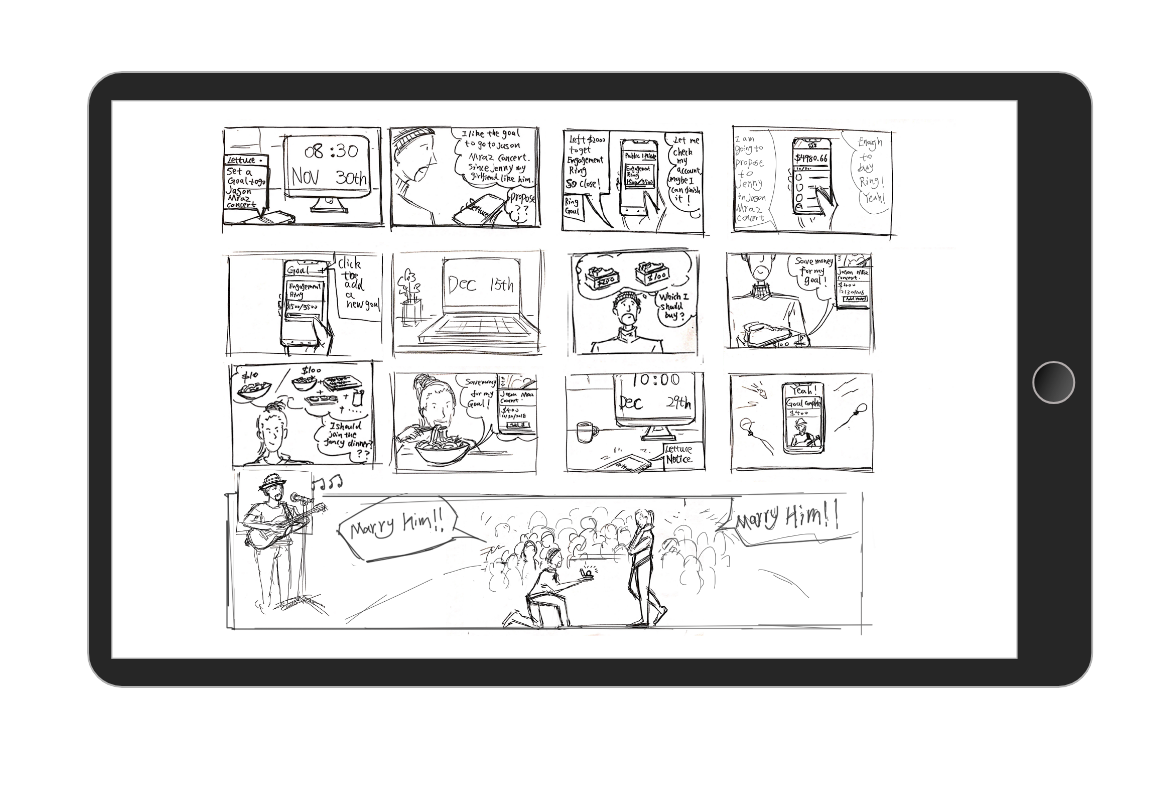 Lettuce :
Set a
Goal to go
Jason
Mraz
concert
08:30
NOV 30th
I like the goal
to go to Jason
Mraz concert.
Since Jenny my
girlfriend like him.
Propose
??
Left $2000
to get
Engagement
Ring
So close!
Ring
Goal
Engagement
Ring
Let me
check
my
account,
maybe I
can finish
it!
I am
going to
propose
to
Jenny
in Jason
Mraz
concert.
$4980.66
Enough
to
buy
Ring!
Yeah!
Goal
Engagement
Ring
click
to
add
a
new goal
Dec 15th
$200
$100
Which I
should
buy?
Save money
for my
goal!
Jason Mraz
concert.
$400
$100
$10
$100
I should
join the
fancy dinner?
??
Save money
for my
Goal!
Jason Mraz
concert.
$400
10:00
Dec 29th
Lettuce
Notice.
Yeah!
Goal Complete
$400
Marry Him!!
Marry Him!!